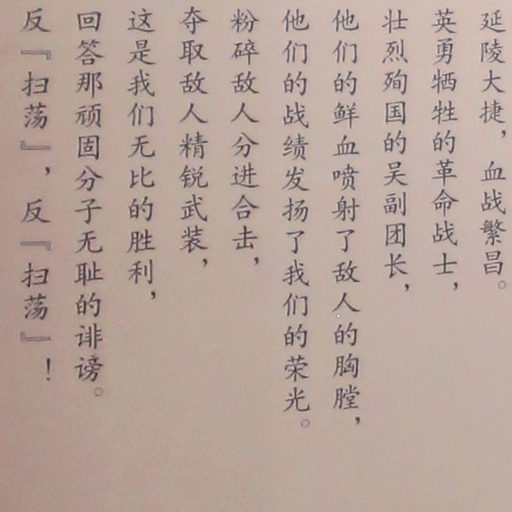 延陵大捷，血战繁昌。
英勇牺牲的革命战士，
壮烈殉国的吴副团长，
他们的鲜血喷射了敌人的胸膛，
他们的战绩发扬了我们的荣光。
粉碎敌人分进合击，
夺取敌人精锐武装，
这是我们无比的胜利，
回答那顽固分子无耻的诽谤。
反『扫荡』，反『扫荡』！